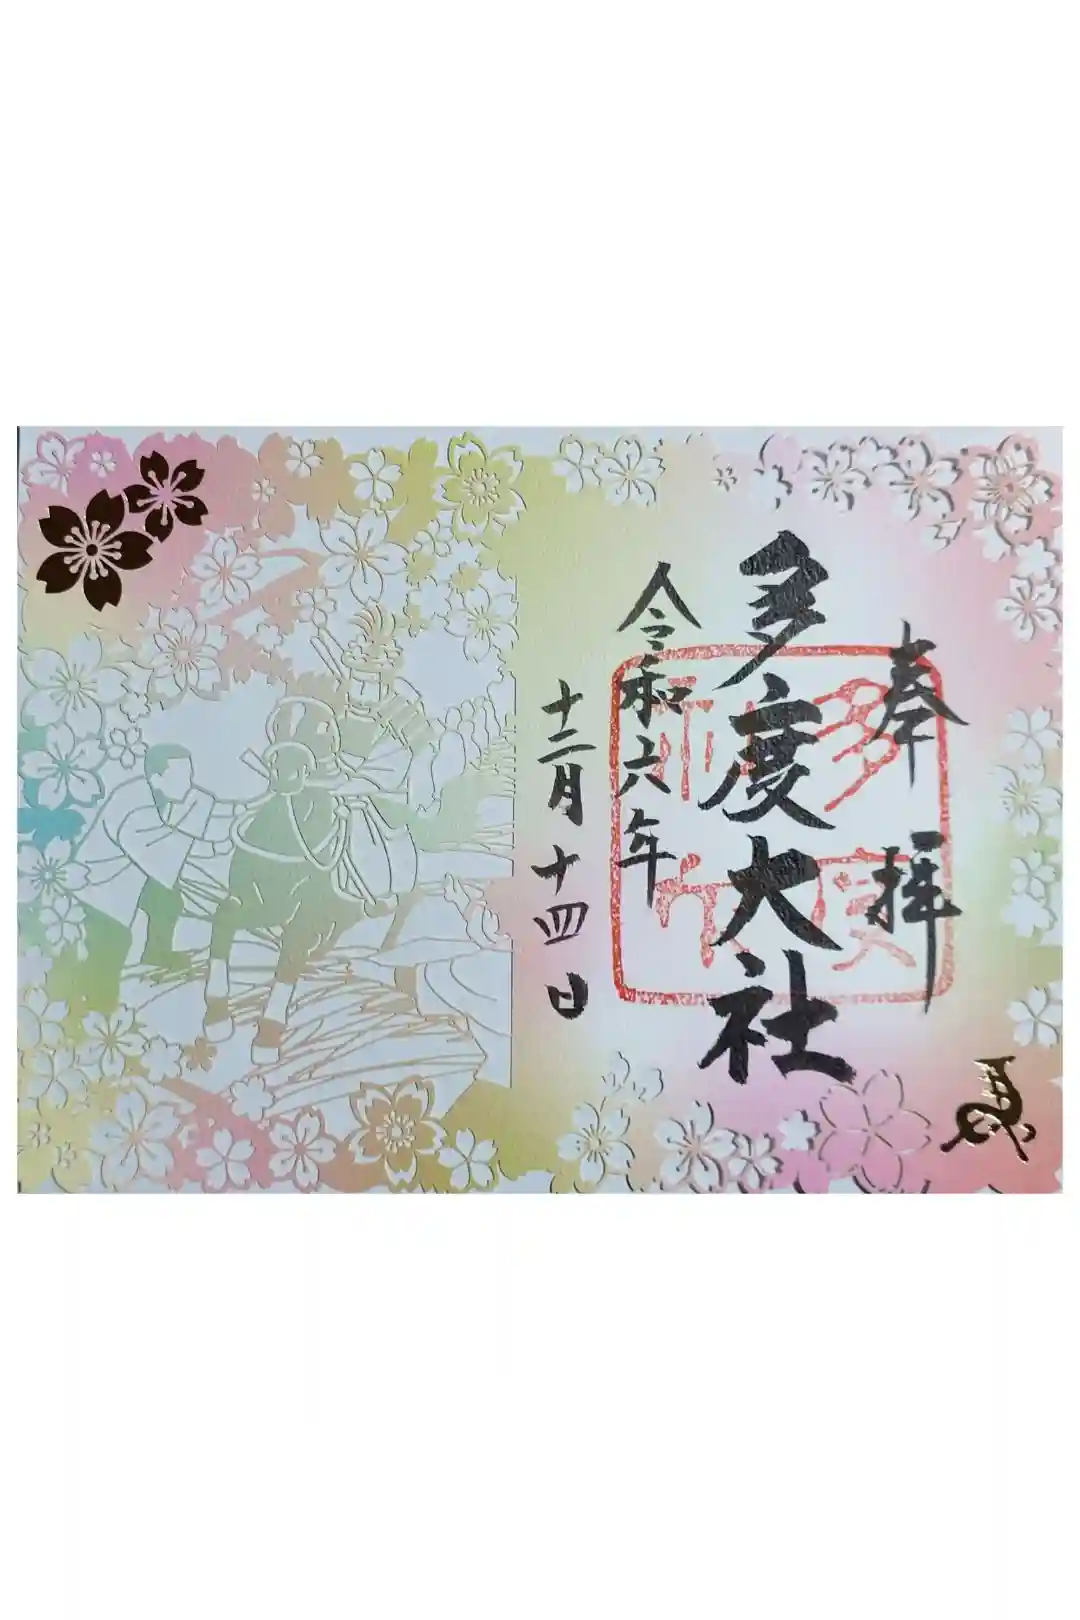 奉拝
多度大社
令和六年
十二月十四日